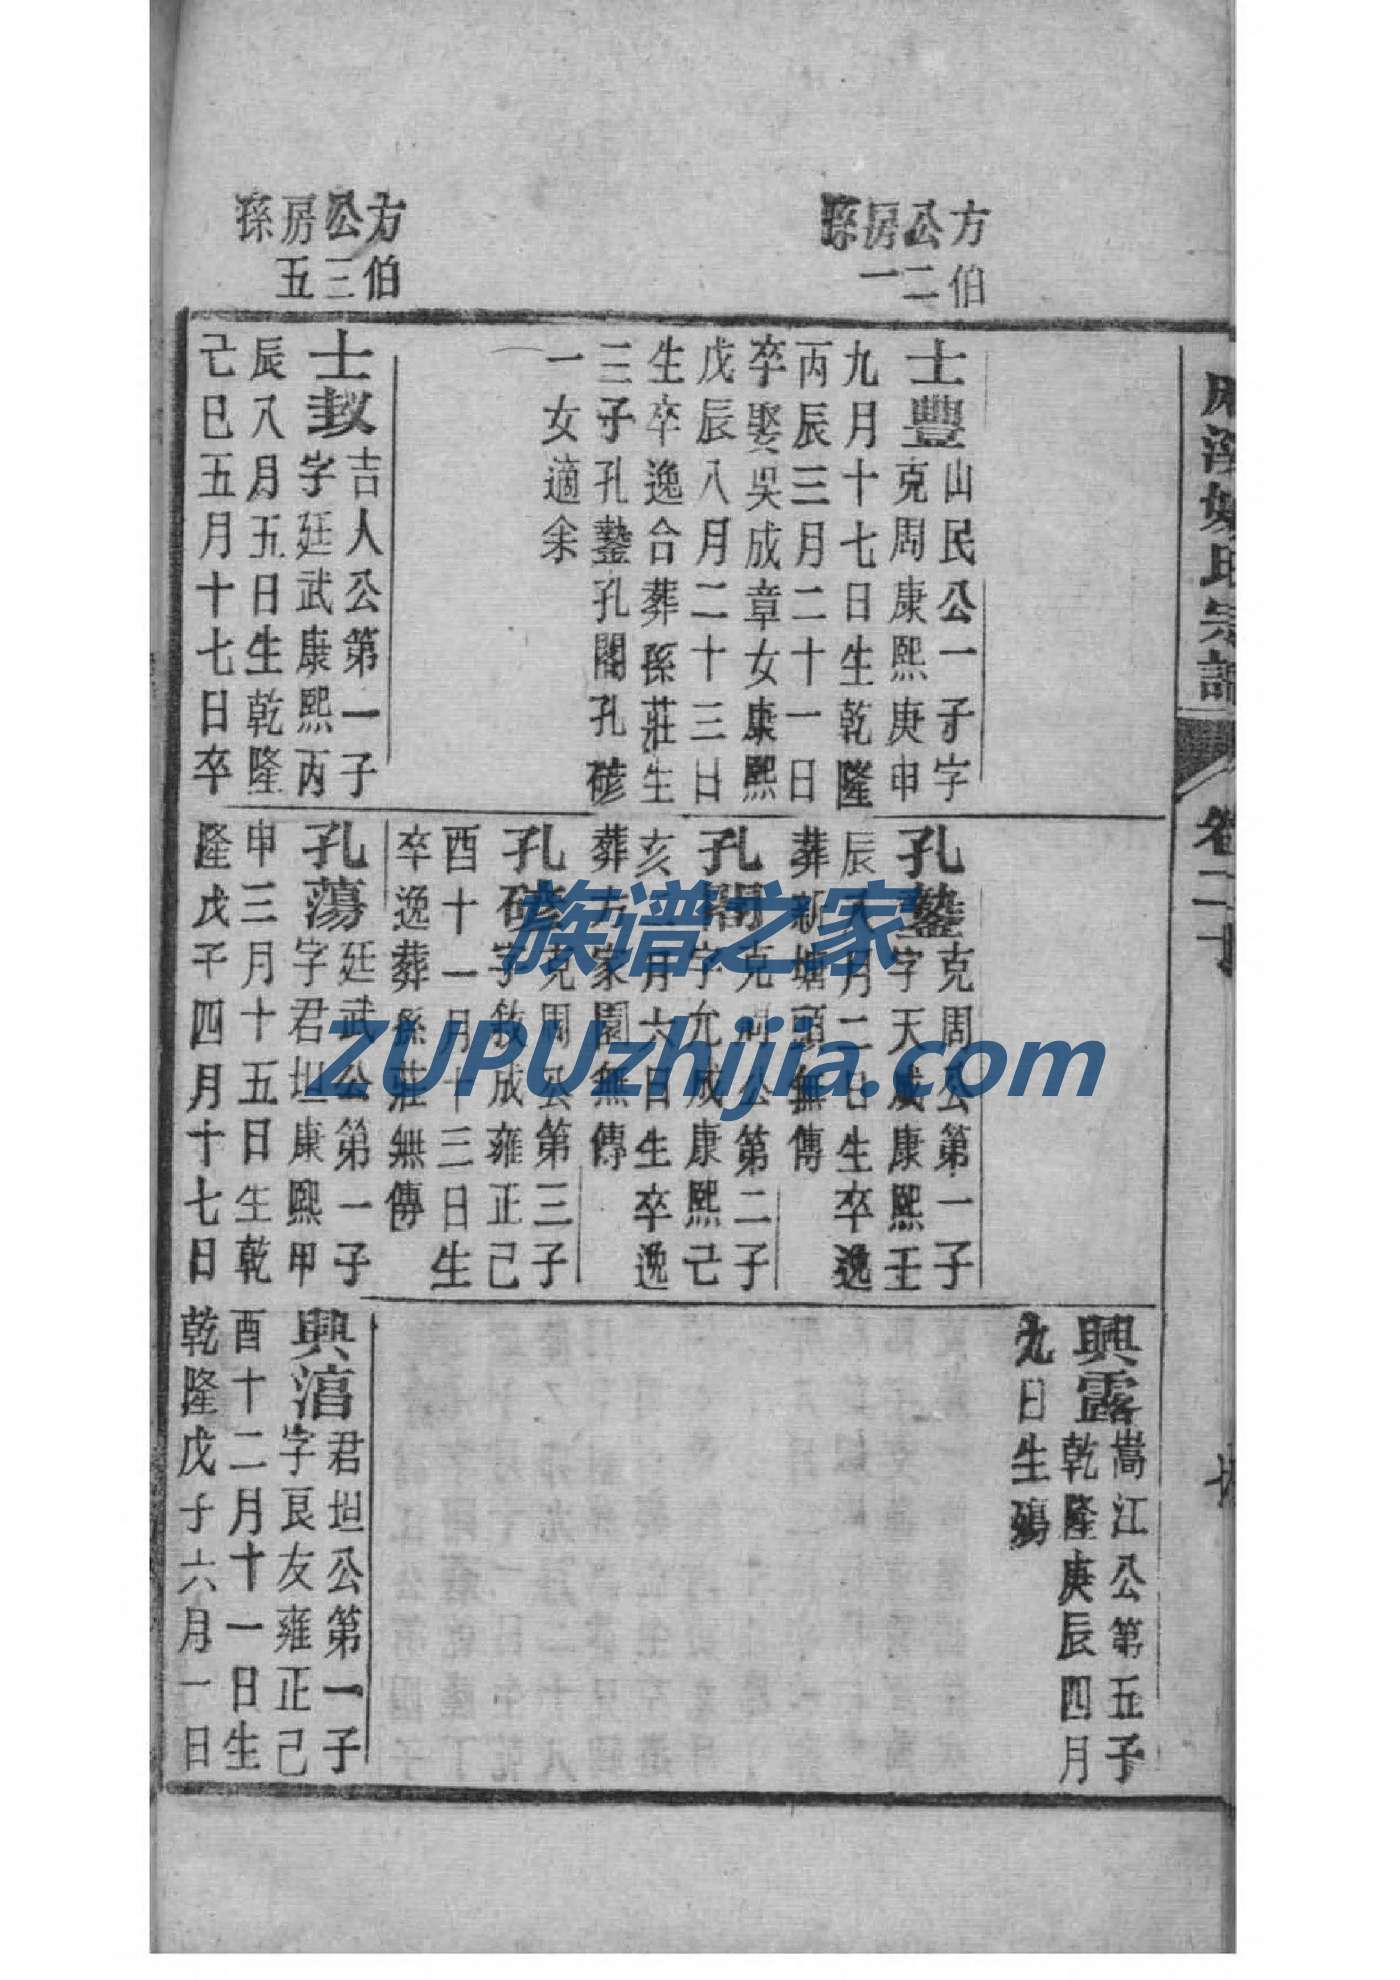 宗譜
卷二十
方伯
公二
房一
孫
士豐山民公一子字
克周康熙庚申
九月十七日生乾隆
丙辰三月二十一日
卒娶吳成章女康熙
戊辰八月二十三日
生卒逸合葬孫莊生
三子孔鏊孔閣孔
一女適余
方伯
公三
房五
孫
士 吉人公第一子
字廷武康熙丙
辰八月五日生乾隆
己巳五月十七日卒
孔鏊克周公第一子
字天 康熙壬
辰 月二 生卒逸
葬新塘 無傳
孔閣克周公第二子
字允成康熙己
亥 月六日生卒逸
葬 家園無傳
孔 克周公第三子
字 成雍正己
酉十一月十三日生
卒逸葬孫莊無傳
孔蕩廷武公第一子
字君坦康熙甲
申三月十五日生乾
隆戊子四月十七日
興露嵩江公第五子
乾隆庚辰四月
九日生殤
興湻君坦公第一子
字艮友雍正己
酉十二月十一日生
乾隆戊子六月一日
族谱之家
ZUPUzhijia.com